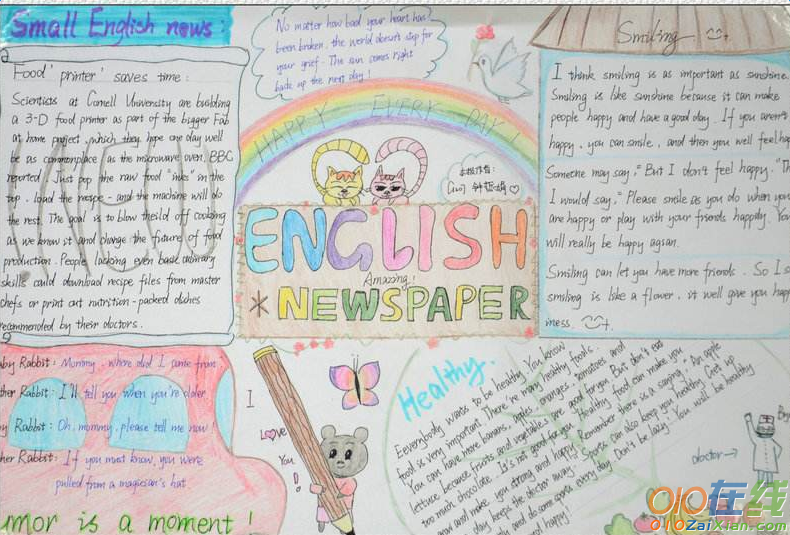 Small English news :
Food 'printer' saves time :
Scientists at Cornell University are building
a 3-D food printer as part of the bigger Fab
at home project, which they hope one day well
be as commonplace as the microwave oven, BBC
reported. Just pop the raw food "inks" in the
top, load the recipe - and the machine will do
the rest. The goal is to blow
as we know it and change the future of food
production. People lacking even basic
skills could download recipe files from master
chefs or print out nutrition-packed dishes
recommended by their doctors.
No matter how bad your heart has
been broken, the world doesn't stop for
your grief. The sun comes right
back up the next day!
HAPPY EVERY DAY!
ENGLISH
Amazing!
NEWSPAPER
Smiling
I think smiling is as important as sunshine.
Smiling is like sunshine because it can make
people happy and have a good day. If you aren't
happy, you can smile, and then you will feel hap
Someone may say, "But I don't feel happy." Th
I would say, "Please smile as you do when you
are happy or play with your friends happily. You
will really be happy again.
Smiling can let you have more friends. So I s
smiling is like a flower, it well give you happ
iness.
by Rabbit: Mommy, where did I come from
her Rabbit: I'll tell you when you're older
y Rabbit: Oh, mommy, please tell me now!
her Rabbit: If you must know, you were
pulled from a magician's hat
mor is a moment!
I
Love
You
!
Healthy.
Eeverybody wants to be healthy. You know
food is very important. There're many healthy foods.
You can have more banans, apples, oranges, tomatoes and
lettuce because fruits and vegetables are good for you. But don't eat
too much chocolate. It's not good for you. Healthy food can make you
and make you strong and happy. Remember there is a saying: An apple
day keeps the doctor away. Sports can also keep you healthy. Get up
ly and do some sports every day. Don't be lazy. You will be healthy
and happy!
doctor→
010在线
010ZaiXian.com